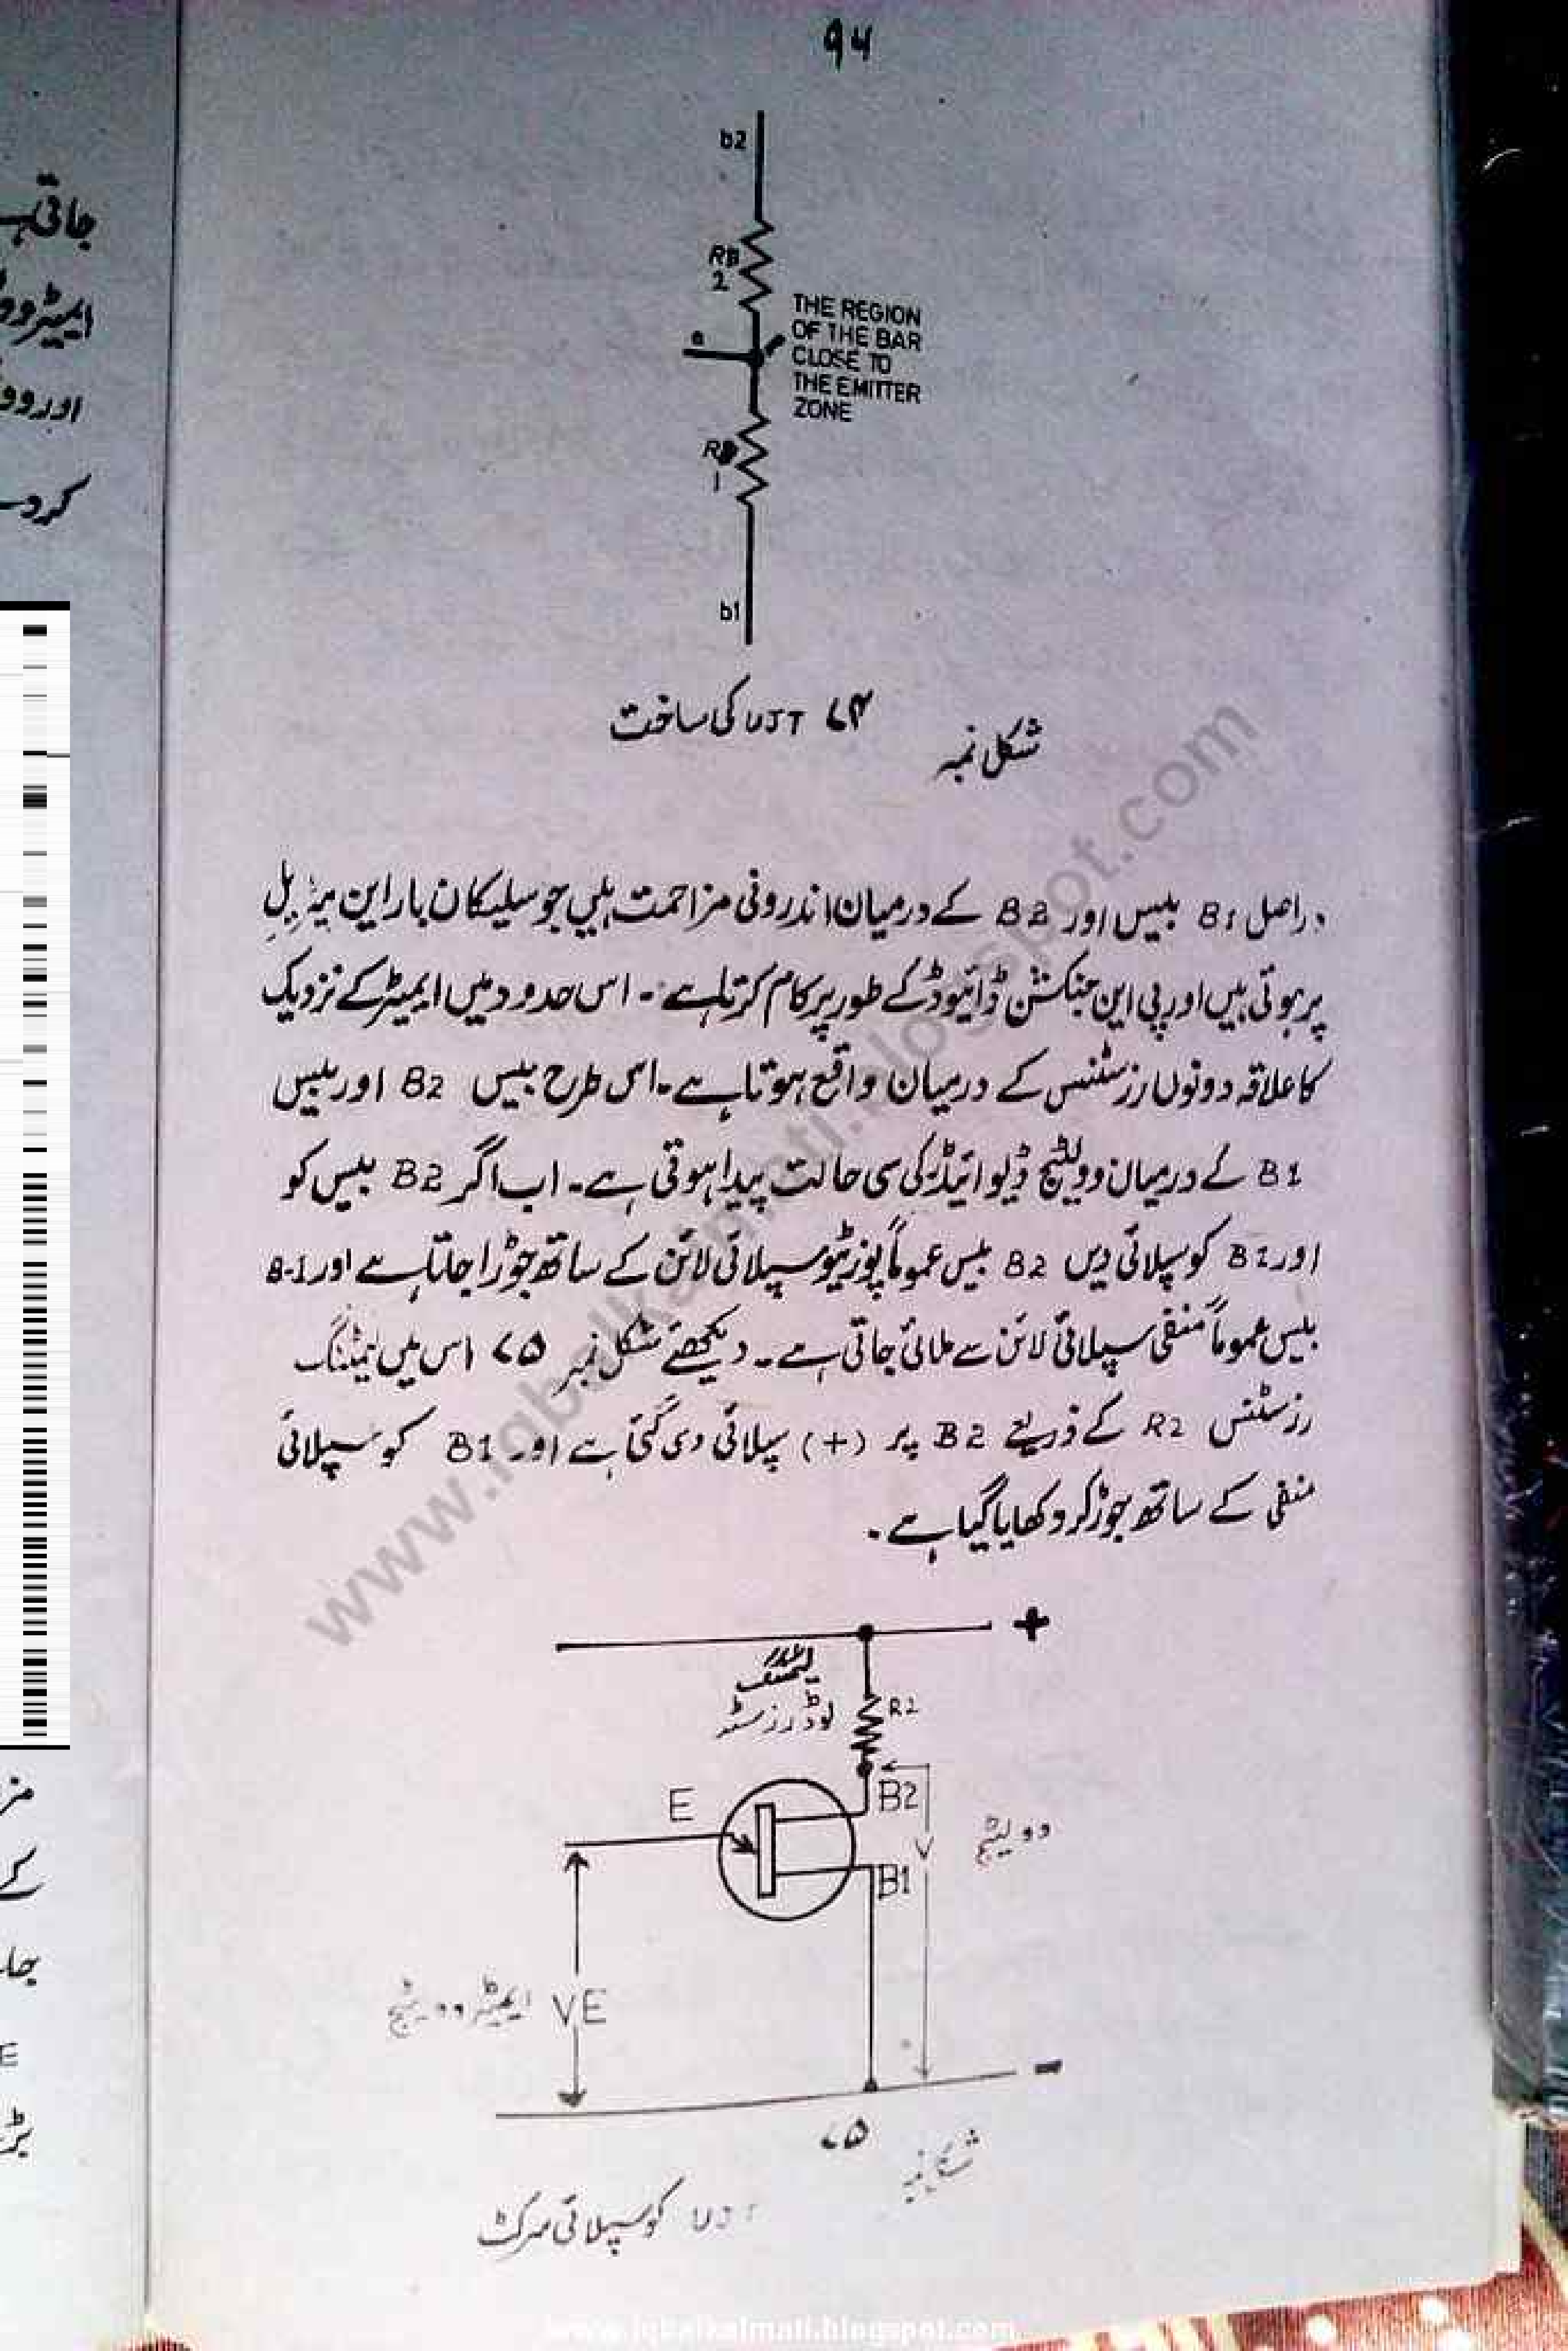 ۹۴
b2
RB
2
e
THE REGION
OF THE BAR
CLOSE TO
THE EMITTER
ZONE
RB
1
b1
شکل نمبر ۷۴ UJT کی ساخت
دراصل B1 بیس اور B2 کے درمیان اندرونی مزاحمت ہیں جو سلیکان بار این میٹریل
پر ہوتی ہیں اور پی این جنکشن ڈائیوڈ کے طور پر کام کرتا ہے ۔ اس حدود میں ایمیٹر کے نزدیک
کا علاقہ دونوں رزسٹنس کے درمیان واقع ہوتا ہے ۔ اس طرح بیس B2 اور بیس
B1 کے درمیان وولٹیج ڈیوائیڈر کی سی حالت پیدا ہوتی ہے ۔ اب اگر B2 بیس کو
اور B1 کو سپلائی دیں B2 بیس عموماً پوزیٹو سپلائی لائن کے ساتھ جوڑا جاتا ہے اور B-1
بیس عموماً منفی سپلائی لائن سے ملائی جاتی ہے ۔ دیکھئے شکل نمبر ۷۵ اس میں لیمٹنگ
رزسٹنس R2 کے ذریعے B2 پر (+) سپلائی دی گئی ہے اور B1 کو سپلائی
منفی کے ساتھ جوڑ کر دکھایا گیا ہے ۔
+
لیمٹنگ
لوڈ رزسٹر
R2
E
B2
V
وولٹیج
B1
VE ایمیٹر وولٹیج
-
شکل نمبر ۷۵
UJT کو سپلائی سرکٹ
جاتی ہے
ایمیٹر وو
اور وو
کر دے
کے
جا
E
www.iqbalkalmati.blogspot.com
www.iqbalkalmati.blogspot.com